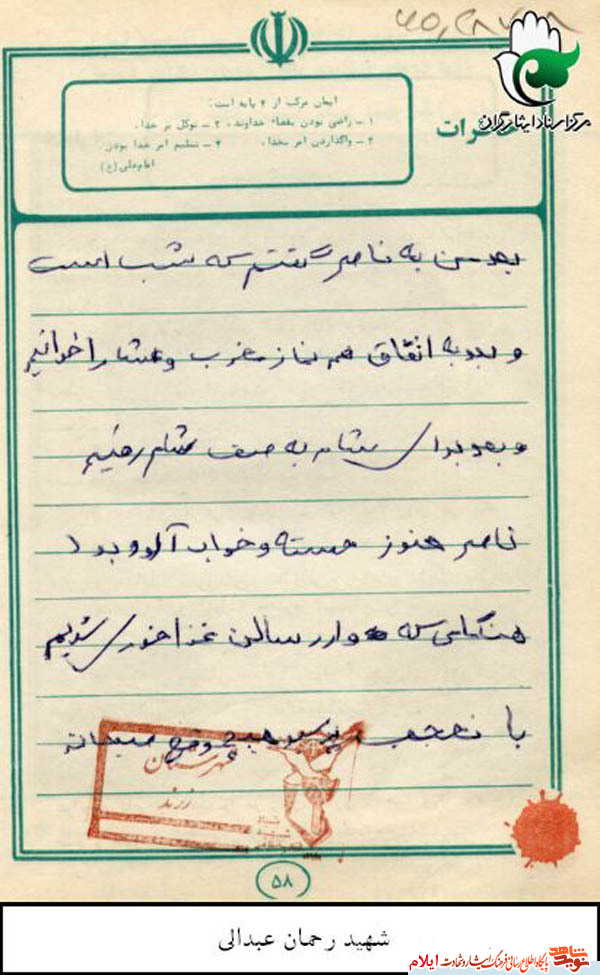 مرکز اسناد ایثارگران
خاطرات
ایمان مرکب از ۴ پایه است:
۱ـ راضی بودن بقضاء خداوند، ۲ـ توکل بر خدا.
۳ـ واگذاردن امر بخدا. ۴ـ تسلیم امر خدا بودن.
امام علی (ع)
بعد من به ناصر گفتم که شب است
و بعد به اتفاق هم نماز مغرب و عشا را خواندیم
و بعد برای شام به صف شام رفتیم
ناصر هنوز خسته و خواب آلود بود
هنگامی که وارد سالن غذا خوری شدیم
با تعجب صبحانه
شهرستان
زرند
۵۸
شهید رحمان عبدالی
نوید شاهد
پایگاه اطلاع رسانی فرهنگ ایثار و شهادت ایلام